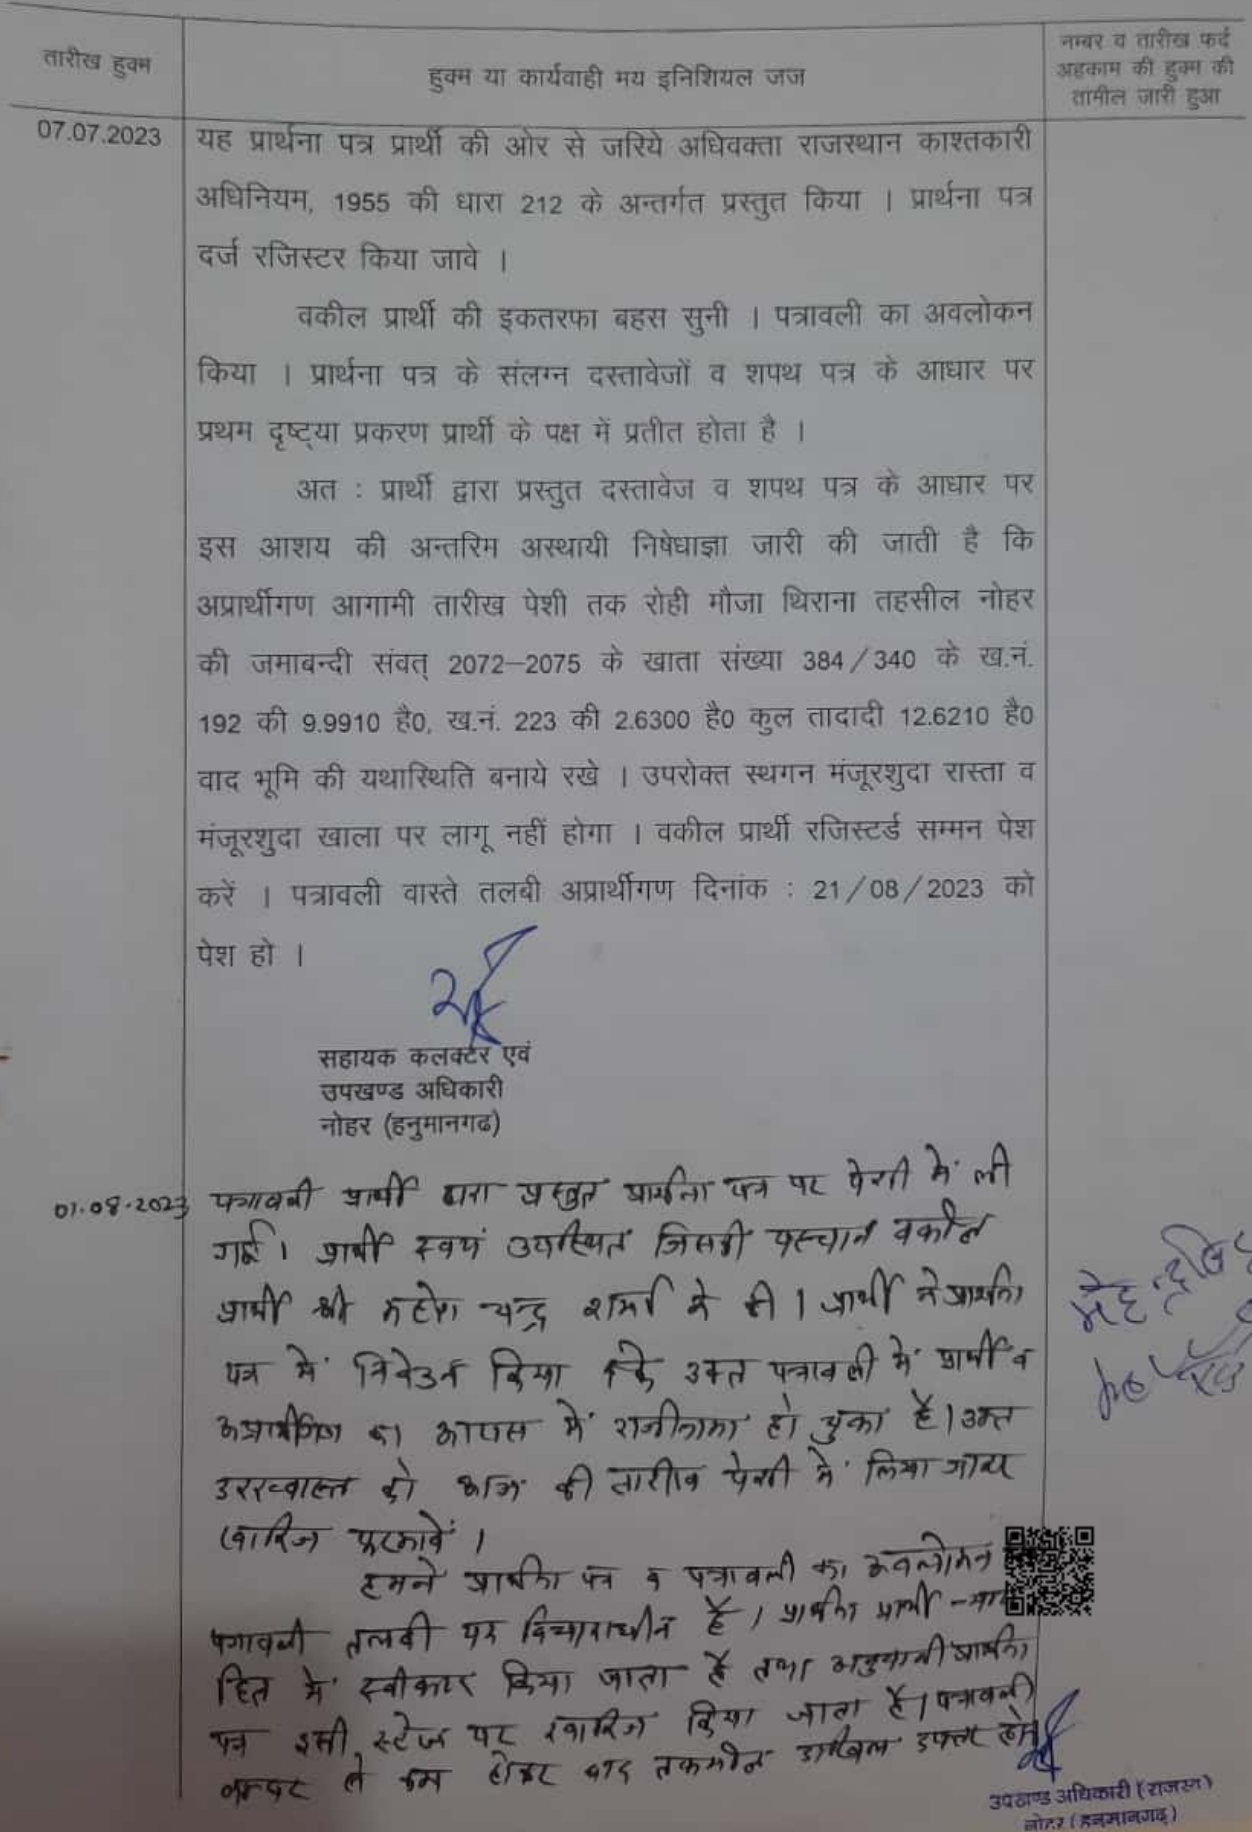 तारीख हुक्म
हुक्म या कार्यवाही मय इनिशियल जज
नम्बर व तारीख फर्द
अहकाम की हुक्म की
तामील जारी हुआ
07.07.2023
यह प्रार्थना पत्र प्रार्थी की ओर से जरिये अधिवक्ता राजस्थान काश्तकारी
अधिनियम, 1955 की धारा 212 के अन्तर्गत प्रस्तुत किया । प्रार्थना पत्र
दर्ज रजिस्टर किया जावे ।
वकील प्रार्थी की इकतरफा बहस सुनी । पत्रावली का अवलोकन
किया । प्रार्थना पत्र के संलग्न दस्तावेजों व शपथ पत्र के आधार पर
प्रथम दृष्ट्या प्रकरण प्रार्थी के पक्ष में प्रतीत होता है ।
अत : प्रार्थी द्वारा प्रस्तुत दस्तावेज व शपथ पत्र के आधार पर
इस आशय की अन्तरिम अस्थायी निषेधाज्ञा जारी की जाती है कि
अप्रार्थीगण आगामी तारीख पेशी तक रोही मौजा थिराना तहसील नोहर
की जमाबन्दी संवत् 2072–2075 के खाता संख्या 384/340 के ख.नं.
192 की 9.9910 है0, ख.नं. 223 की 2.6300 है0 कुल तादादी 12.6210 है0
वाद भूमि की यथास्थिति बनाये रखे । उपरोक्त स्थगन मंजूरशुदा रास्ता व
मंजूरशुदा खाला पर लागू नहीं होगा । वकील प्रार्थी रजिस्टर्ड सम्मन पेश
करें । पत्रावली वास्ते तलबी अप्रार्थीगण दिनांक : 21/08/2023 को
पेश हो ।
सहायक कलक्टर एवं
उपखण्ड अधिकारी
नोहर (हनुमानगढ)
01.08.2023
पत्रावली प्रार्थी द्वारा प्रस्तुत प्रार्थना पत्र पर पेशी में ली
गई। प्रार्थी स्वयं उपस्थित जिसकी पहचान वकील
प्रार्थी श्री चन्द्र शर्मा ने की । प्रार्थी ने प्रार्थना
पत्र में निवेदन किया कि उक्त पत्रावली में प्रार्थी व
अप्रार्थीगण का आपस में राजीनामा हो चुका है। उक्त
दरख्वास्त को आज की तारीख पेशी में लिया जाकर
खारिज फरमावें ।
हमने प्रार्थना पत्र व पत्रावली का अवलोकन
पत्रावली तलबी पर विचाराधीन है । प्रार्थना प्रार्थी
हित में स्वीकार किया जाता है तथा प्रार्थना
पत्र इसी स्टेज पर खारिज किया जाता है। पत्रावली
नम्बर से कम होकर बाद तकमील दाखिल दफ्तर हो
उपखण्ड अधिकारी (राजस्व)
नोहर (हनुमानगढ़)